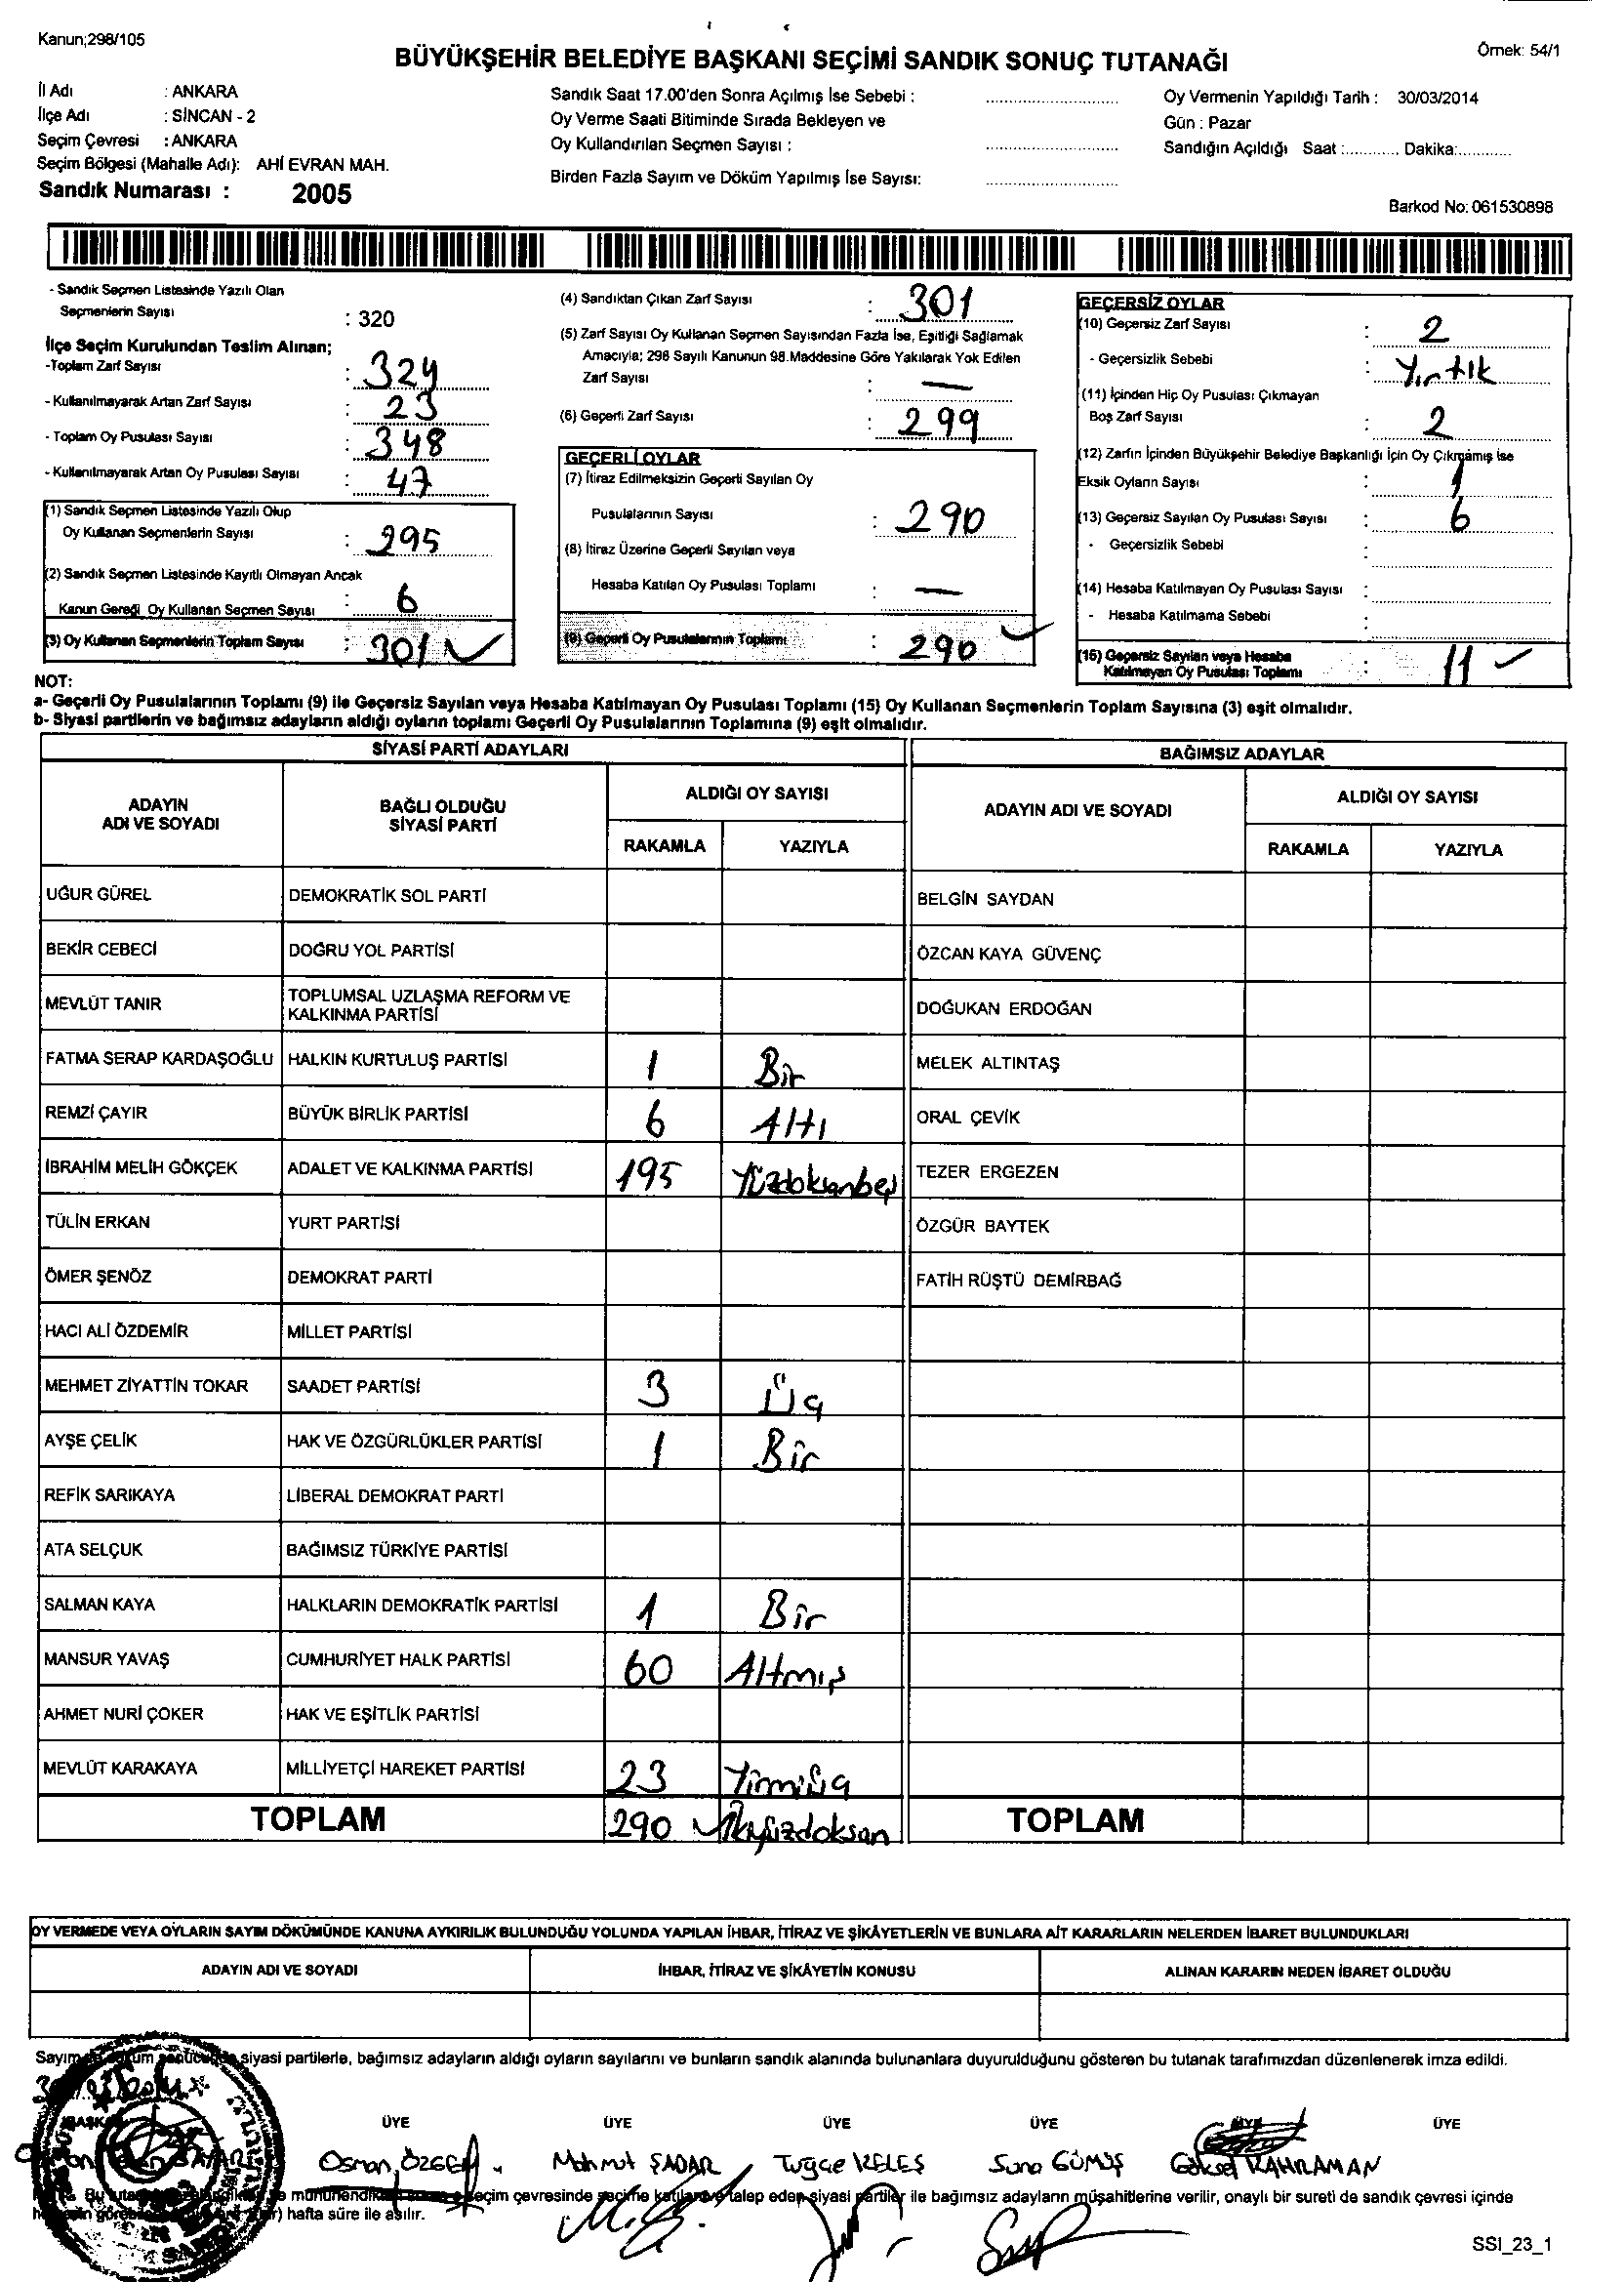 Kanun;298/105
Örnek: 54/1
BÜYÜKŞEHİR BELEDİYE BAŞKANI SEÇİMİ SANDIK SONUÇ TUTANAĞI
İl Adı : ANKARA
İlçe Adı : SİNCAN - 2
Seçim Çevresi : ANKARA
Seçim Bölgesi (Mahalle Adı): AHİ EVRAN MAH.
Sandık Numarası : 2005
Sandık Saat 17.00'den Sonra Açılmış İse Sebebi :
Oy Verme Saati Bitiminde Sırada Bekleyen ve
Oy Kullandırılan Seçmen Sayısı :
Birden Fazla Sayım ve Döküm Yapılmış İse Sayısı:
Oy Vermenin Yapıldığı Tarih : 30/03/2014
Gün : Pazar
Sandığın Açıldığı Saat :........... Dakika:...........
Barkod No: 061530898
- Sandık Seçmen Listesinde Yazılı Olan
Seçmenlerin Sayısı : 320
İlçe Seçim Kurulundan Teslim Alınan;
-Toplam Zarf Sayısı : 324
- Kullanılmayarak Artan Zarf Sayısı : 23
- Toplam Oy Pusulası Sayısı : 348
- Kullanılmayarak Artan Oy Pusulası Sayısı : 47
(1) Sandık Seçmen Listesinde Yazılı Olup
Oy Kullanan Seçmenlerin Sayısı : 295
(2) Sandık Seçmen Listesinde Kayıtlı Olmayan Ancak
Kanun Gereği Oy Kullanan Seçmen Sayısı : 6
(3) Oy Kullanan Seçmenlerin Toplam Sayısı : 301
(4) Sandıktan Çıkan Zarf Sayısı : 301
(5) Zarf Sayısı Oy Kullanan Seçmen Sayısından Fazla İse, Eşitliği Sağlamak
Amacıyla; 298 Sayılı Kanunun 98.Maddesine Göre Yakılarak Yok Edilen
Zarf Sayısı : —
(6) Geçerli Zarf Sayısı : 299
GEÇERLİ OYLAR
(7) İtiraz Edilmeksizin Geçerli Sayılan Oy
Pusulalarının Sayısı : 290
(8) İtiraz Üzerine Geçerli Sayılan veya
Hesaba Katılan Oy Pusulası Toplamı : —
(9) Geçerli Oy Pusulalarının Toplamı : 290
GEÇERSİZ OYLAR
(10) Geçersiz Zarf Sayısı : 2
- Geçersizlik Sebebi : Yırtık
(11) İçinden Hiç Oy Pusulası Çıkmayan
Boş Zarf Sayısı : 2
(12) Zarfın İçinden Büyükşehir Belediye Başkanlığı İçin Oy Çıkmamış ise
Eksik Oyların Sayısı : 1
(13) Geçersiz Sayılan Oy Pusulası Sayısı : 6
- Geçersizlik Sebebi :
(14) Hesaba Katılmayan Oy Pusulası Sayısı :
- Hesaba Katılmama Sebebi :
(15) Geçersiz Sayılan veya Hesaba
Katılmayan Oy Pusulası Toplamı : 11
NOT:
a- Geçerli Oy Pusulalarının Toplamı (9) ile Geçersiz Sayılan veya Hesaba Katılmayan Oy Pusulası Toplamı (15) Oy Kullanan Seçmenlerin Toplam Sayısına (3) eşit olmalıdır.
b- Siyasi partilerin ve bağımsız adayların aldığı oyların toplamı Geçerli Oy Pusulalarının Toplamına (9) eşit olmalıdır.
SİYASİ PARTİ ADAYLARI
ADAYIN ADI VE SOYADI
BAĞLI OLDUĞU SİYASİ PARTİ
ALDIĞI OY SAYISI
RAKAMLA YAZIYLA
UĞUR GÜREL DEMOKRATİK SOL PARTİ
BEKİR CEBECİ DOĞRU YOL PARTİSİ
MEVLÜT TANIR TOPLUMSAL UZLAŞMA REFORM VE KALKINMA PARTİSİ
FATMA SERAP KARDAŞOĞLU HALKIN KURTULUŞ PARTİSİ 1 Bir
REMZİ ÇAYIR BÜYÜK BİRLİK PARTİSİ 6 Altı
İBRAHİM MELİH GÖKÇEK ADALET VE KALKINMA PARTİSİ 195 Yüzdoksanbeş
TÜLİN ERKAN YURT PARTİSİ
ÖMER ŞENÖZ DEMOKRAT PARTİ
HACI ALİ ÖZDEMİR MİLLET PARTİSİ
MEHMET ZİYATTİN TOKAR SAADET PARTİSİ 3 Üç
AYŞE ÇELİK HAK VE ÖZGÜRLÜKLER PARTİSİ 1 Bir
REFİK SARIKAYA LİBERAL DEMOKRAT PARTİ
ATA SELÇUK BAĞIMSIZ TÜRKİYE PARTİSİ
SALMAN KAYA HALKLARIN DEMOKRATİK PARTİSİ 1 Bir
MANSUR YAVAŞ CUMHURİYET HALK PARTİSİ 60 Altmış
AHMET NURİ ÇOKER HAK VE EŞİTLİK PARTİSİ
MEVLÜT KARAKAYA MİLLİYETÇİ HAREKET PARTİSİ 23 Yirmiüç
TOPLAM 290 İkiyüzdoksan
BAĞIMSIZ ADAYLAR
ADAYIN ADI VE SOYADI
ALDIĞI OY SAYISI
RAKAMLA YAZIYLA
BELGİN SAYDAN
ÖZCAN KAYA GÜVENÇ
DOĞUKAN ERDOĞAN
MELEK ALTINTAŞ
ORAL ÇEVİK
TEZER ERGEZEN
ÖZGÜR BAYTEK
FATİH RÜŞTÜ DEMİRBAĞ
TOPLAM
OY VERMEDE VEYA OYLARIN SAYIM DÖKÜMÜNDE KANUNA AYKIRILIK BULUNDUĞU YOLUNDA YAPILAN İHBAR, İTİRAZ VE ŞİKÂYETLERİN VE BUNLARA AİT KARARLARIN NELERDEN İBARET BULUNDUKLARI
ADAYIN ADI VE SOYADI
İHBAR, İTİRAZ VE ŞİKÂYETİN KONUSU
ALINAN KARARIN NEDEN İBARET OLDUĞU
Sayım siyasi partilerle, bağımsız adayların aldığı oyların sayılarını ve bunların sandık alanında bulunanlara duyurulduğunu gösteren bu tutanak tarafımızdan düzenlenerek imza edildi.
ÜYE ÜYE ÜYE ÜYE ÜYE ÜYE
Osman Mahmut ŞADAR Tuğçe KELEŞ Suna GÜMÜŞ Göksel KAHRAMAN
seçim çevresinde seçime katılan ve talep eden siyasi partiler ile bağımsız adayların müşahitlerine verilir, onaylı bir sureti de sandık çevresi içinde
hafta süre ile asılır.
SSI_23_1